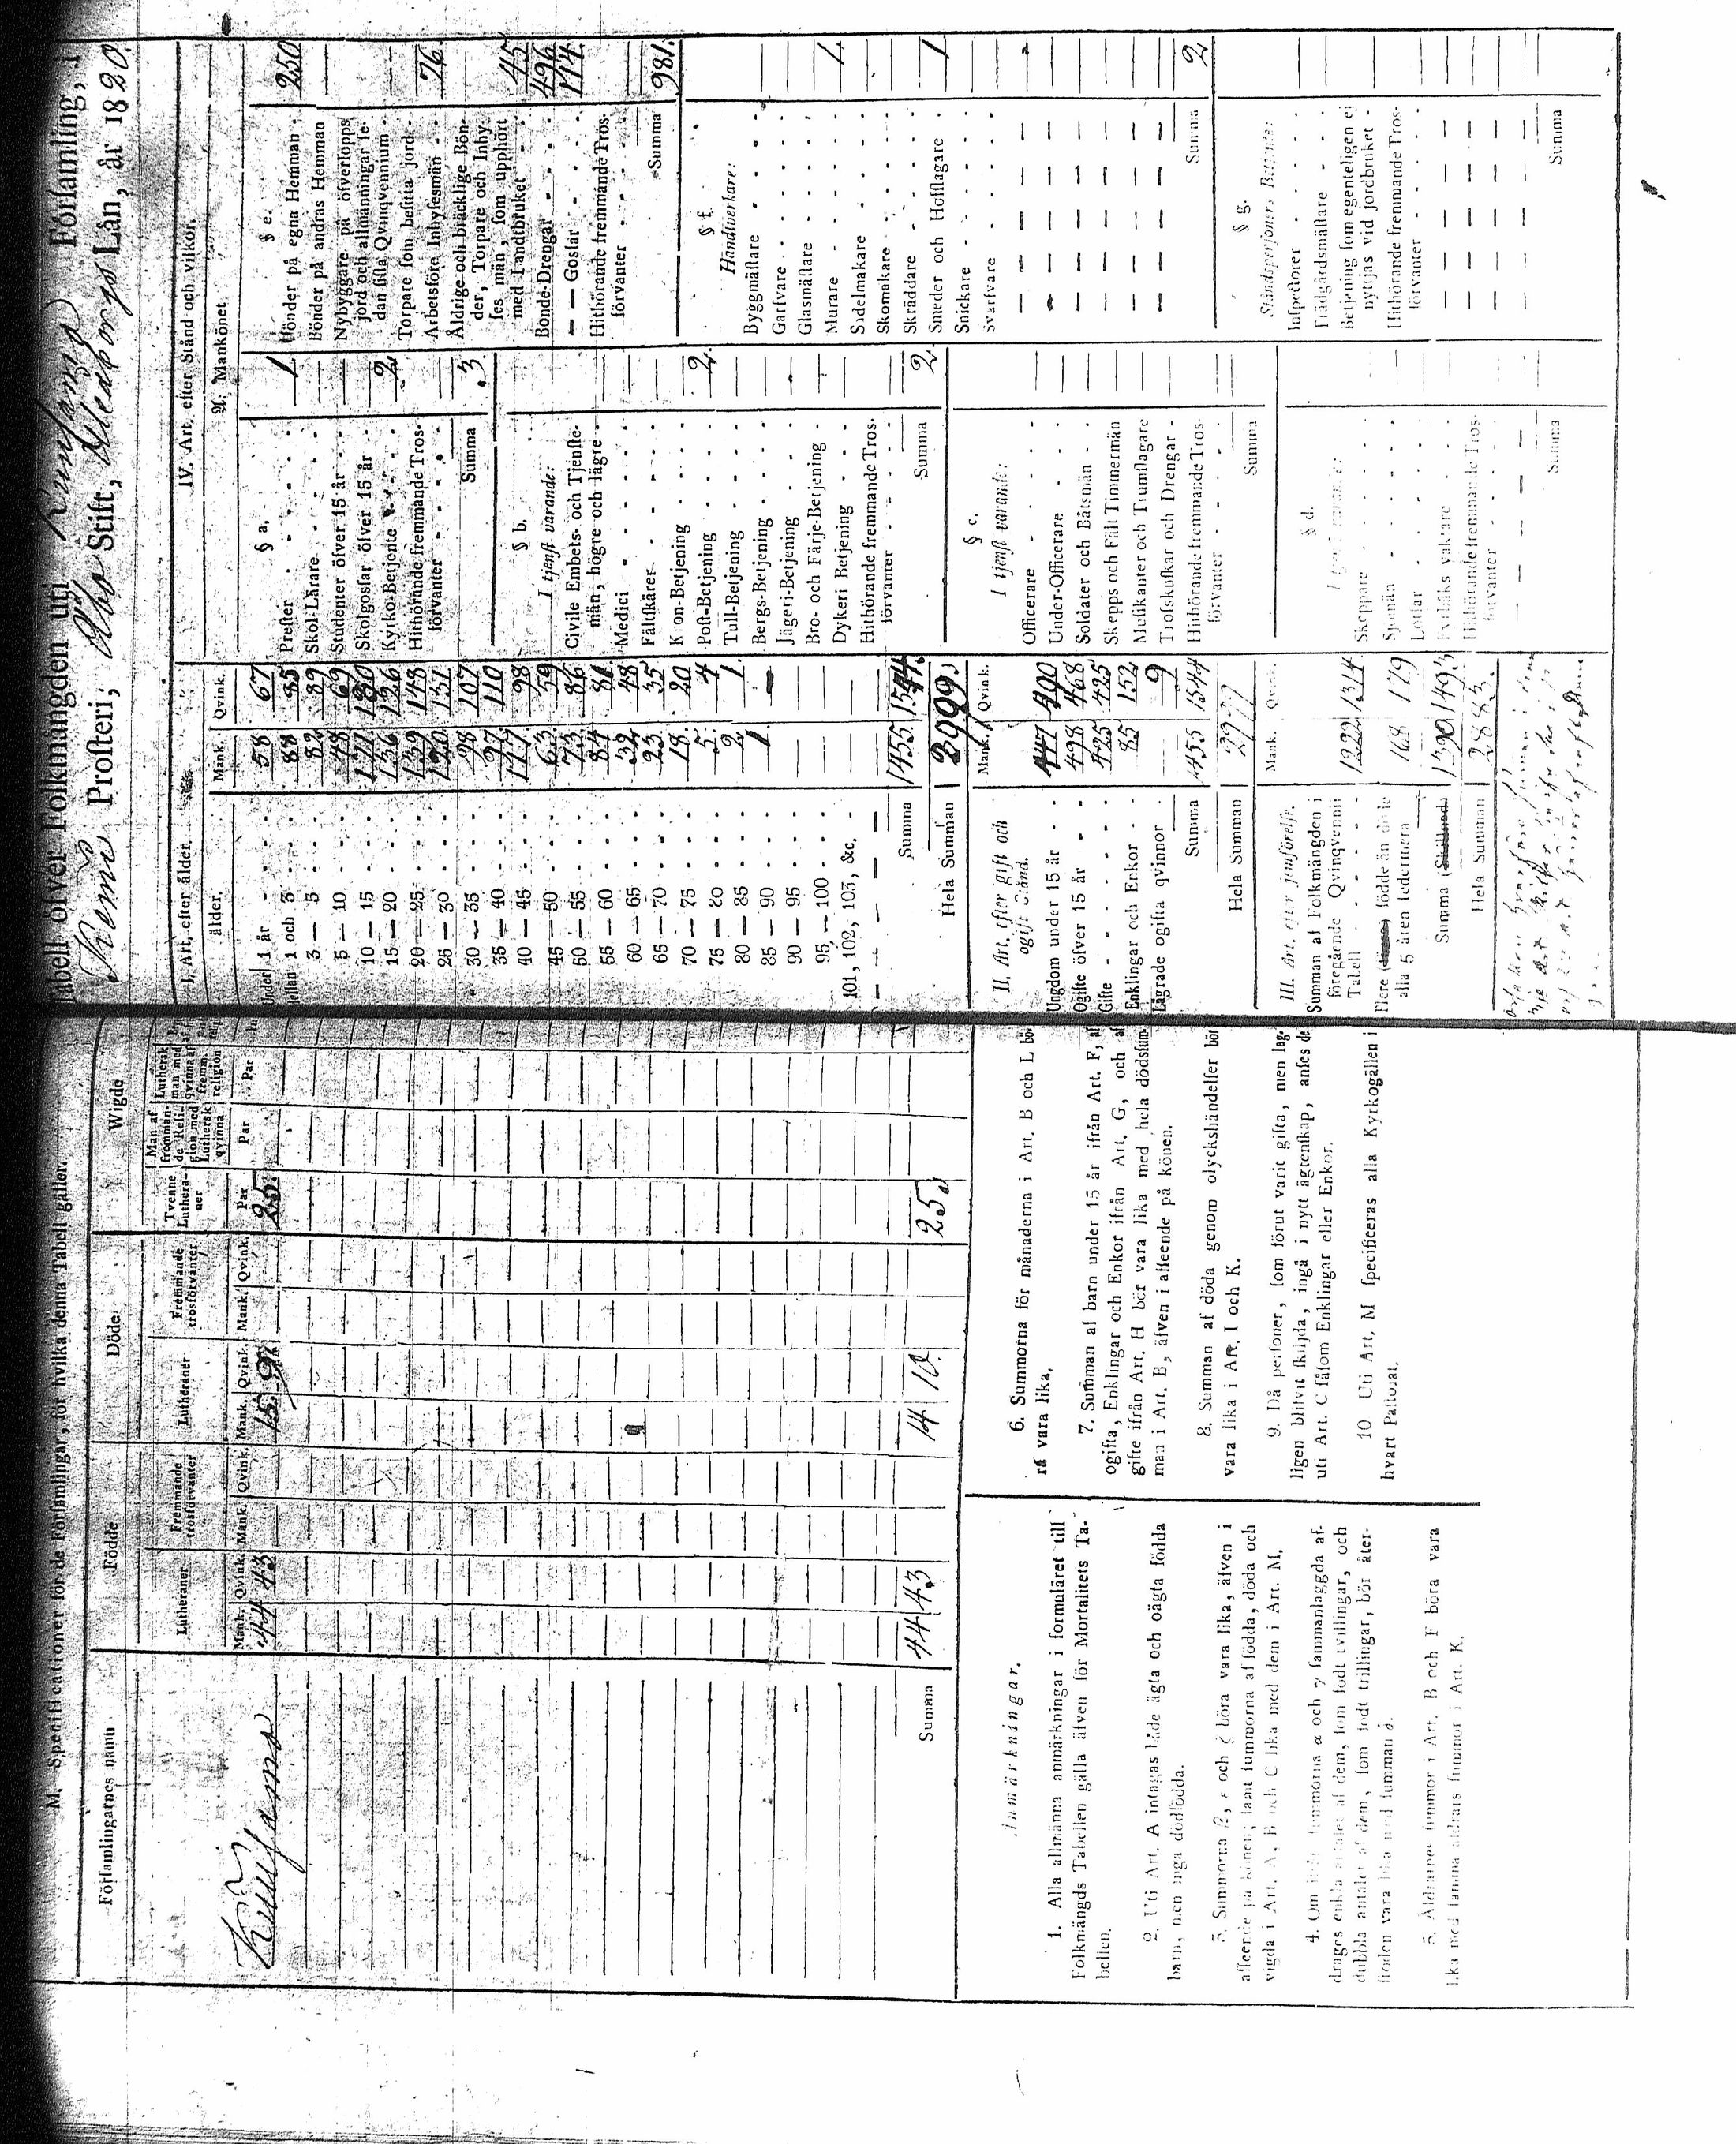 M. Specificationer för de Församlingar, för hvilka denna Tabell gäller.
Församlingarnes namn
Födde
Döde
Wigde
Lutheraner
Fremmande trosförvanter
Lutheraner
Fremmande trosförvanter
Tvenne Lutheraner
Man af fremmande Religion med Luthersk qvinna
Luthersk man med qvinna af fremm. religion
Mank. Qvink. Mank. Qvink. Mank. Qvink. Mank. Qvink. Par Par Par
Kuusamo 44 43 15 9 25
Summa 44 43 14 10 25
Anmärkningar.
1. Alla allmänna anmärkningar i formuläret till
Folkmängds Tabellen gälla äfven för Mortalitets Ta-
bellen.
2. Uti Art. A intagas både ägta och oägta födda
barn, men inga dödfödda.
3. Summorna β, ε och ζ böra vara lika, äfven i
afseende på könen; samt summorna af födda, döda och
vigda i Art. A, B och C lika med dem i Art. M.
4. Om ifrån summorna α och γ sammanlaggda af-
drages enkla antalet af dem, som födt tvillingar, och
dubbla antalet af dem, som födt trillingar, bör åter-
stoden vara lika med summan δ.
5. Åldrarnes summor i Art. B och F böra vara
lika med samma åldrars summor i Art. K.
6. Summorna för månaderna i Art. B och L bö-
ra vara lika.
7. Summan af barn under 15 år ifrån Art. F, af
ogifta, Enklingar och Enkor ifrån Art. G, och af
gifte ifrån Art. H bör vara lika med hela dödssum-
man i Art. B, äfven i afseende på könen.
8. Summan af döda genom olyckshändelser bör
vara lika i Art. I och K.
9. Då personer, som förut varit gifta, men lag-
ligen blifvit skiljda, ingå i nytt ägtenskap, anses de
uti Art. C såsom Enklingar eller Enkor.
10 Uti Art. M specificeras alla Kyrkogällen i
hvart Pastorat.
Tabell öfver Folkmängden uti Kuusamo Församling, i
Kemi Prosteri; Åbo Stift, Uleåborgs Län, år 1820.
I. Art. efter ålder.
ålder. Mank. Qvink.
Under 1 år 58 67
Mellan 1 och 3 88 85
3 — 5 82 89
5 — 10 48 69
10 — 15
15 — 20 136 126
20 — 25 139 148
25 — 30 120 131
30 — 35 98 107
35 — 40 97 110
40 — 45 98
45 — 50 63 59
50 — 55 73 86
55 — 60 84 81
60 — 65 32 48
65 — 70 23 35
70 — 75 18 20
75 — 80 5 4
80 — 85 2 1
85 — 90 1 —
90 — 95
95 — 100
101, 102, 103, &c.
Summa 1455 1544
Hela Summan 2999
II. Art. efter gift och
ogift Stånd. Mank. Qvink.
Ungdom under 15 år 447 400
Ogifte öfver 15 år 498 468
Gifte 425 425
Enklingar och Enkor 85 152
Lägrade ogifta qvinnor 9
Summa 1455 1544
Hela Summan
III. Art. efter jemförelse. Mank. Qvink.
Summan af Folkmängden i
föregående Qvinqvennii
Tabell 1222 1314
Flere födde än döde
alla 5 åren sedermera 168 179
Summa (Skillnad) 1390 1493
Hela Summan 2883
IV. Art. efter Stånd och vilkor.
A. Mankönet
§ a.
Prester 1
Skol-Lärare
Studenter öfver 15 år
Skolgossar öfver 15 år
Kyrko-Betjente 2
Hithörande fremmande Tros-
förvanter
Summa 3
§ b.
I tjenst varande:
Civile Embets- och Tjenste-
män, högre och lägre
Medici
Fältskärer
Kron-Betjening 2
Post-Betjening
Tull-Betjening
Bergs-Betjening
Jägeri-Betjening
Bro- och Färje-Betjening
Dykeri Betjening
Hithörande fremmande Tros-
förvanter
Summa 2
§ c.
I tjenst varande:
Officerare
Under-Officerare
Soldater och Båtsmän
Skepps och Fält Timmermän
Musikanter och Trumslagare
Trosskuskar och Drengar
Hithörande fremmande Tros-
förvanter
Summa
§ d.
Skeppare
Lotsar
Hithörande fremmande Tros-
förvanter
Summa
§ e.
Bönder på egna Hemman 250
Bönder på andras Hemman
Nybyggare på öfverlopps
jord och allmänningar se-
dan sista Qvinqvennium
Torpare som besitta jord 76
Arbetsföre Inhysesmän
Åldrige och bräcklige Bön-
der, Torpare och Inhy-
ses män, som upphört
med Landtbruket 45
Bonde-Drengar 496
— — Gossar 114
Hithörande fremmande Tros-
förvanter
Summa 981
§ f.
Handtverkare:
Byggmästare
Garfvare
Glasmästare
Murare 1
Sadelmakare
Skomakare
Skräddare
Smeder och Hofslagare 1
Snickare
Svarfvare
Summa 2
§ g.
Ståndspersoners Betjente:
Inspectorer
Trädgårdsmästare
Betjening som egenteligen ej
nyttjas vid jordbruket
Hithörande fremmande Tros-
förvanter
Summa